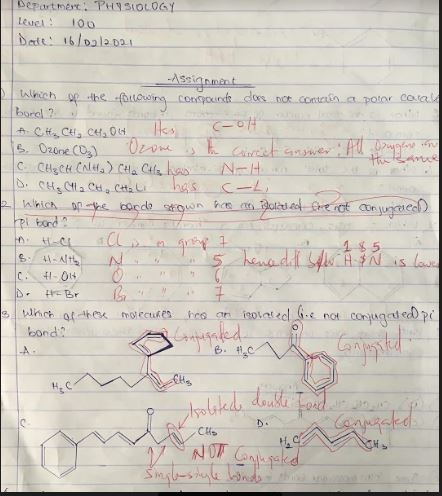 Department: PHYSIOLOGY
Level: 100
Date: 16/02/2021
Assignment
Which of the following compounds does not contain a polar covale
bond?
A. CH₃ CH₂ CH₂ OH Has C-OH
B. Ozone (O₃) Ozone is the correct answer. All Oxygen
the same
C. CH₃CH (NH₂) CH₂ CH₃ has N-H
D. CH₃ CH₂ CH₂ CH₂Li has C-Li
2. Which of the bonds shown has an isolated (i.e not conjugated)
pi bond?
A. H-Cl Cl is in group 7 1 & 5
B. H-NH₂ N " " " 5 hence diff btw H & N is lowe
C. H-OH O " " " 6
D. H-Br Br " " " 7
3. Which of these molecules has an isolated (i.e not conjugated) pi
bond?
A. Conjugated B. H₃C O Conjugated
H₃C CH₃
Isolated double bond
C. O CH₃ D. Conjugated
NOT Conjugated H₂C CH₃
Single-single bonds